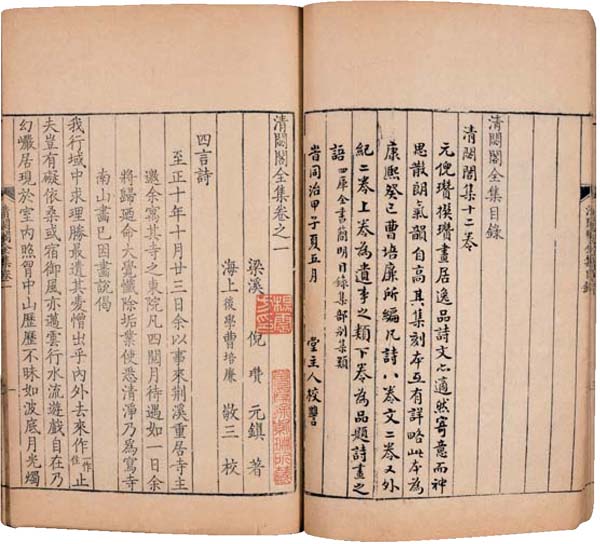 清閟閣全集目錄
清閟閣集十二卷
元倪瓚撰瓚畫居逸品詩文亦適然寄意而神
思散朗氣韻自高其集刻本互有詳略此本為
康熙癸巳曹培廉所編凡詩八卷文二卷又外
紀二卷上卷為遺事之類下卷為品題詩畫之
語 四庫全書簡明目錄集部別集類
旹同治甲子夏五月 堂主人校讐
清閟閣全集卷之一
梁溪 倪瓚 元鎮 著
海上後學曹培廉 敬三 校
四言詩
至正十年十月廿三日余以事來荆溪重居寺主
邀余寓其寺之東院凡四閱月待遇如一日余
將歸迺命大覺懺除垢業使悉清淨乃爲寫寺
南山畫已因畫說偈
我行域中求理勝最遺其愛憎出乎內外去來作一作住止
夫豈有礙依桑或宿御風亦邁雲行水流遊戲自在乃
幻巖居現於室內照胷中山歷歷不昧如波底月光燭